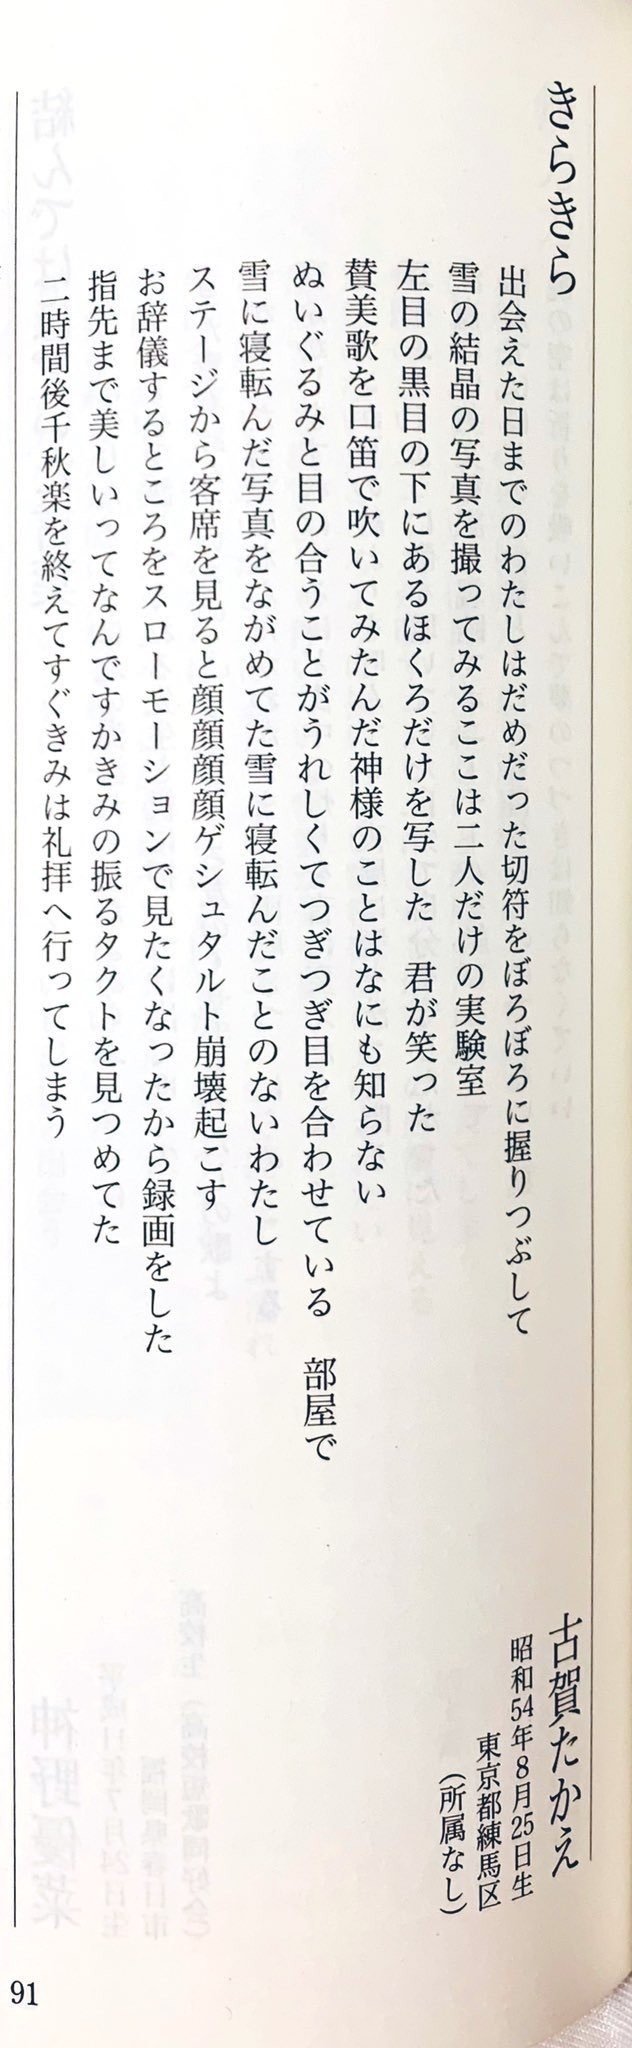 きらきら
古賀たかえ
昭和54年8月25日生
東京都練馬区
（所属なし）
出会えた日までのわたしはだめだった切符をぼろぼろに握りつぶして
雪の結晶の写真を撮ってみるここは二人だけの実験室
左目の黒目の下にあるほくろだけを写した　君が笑った
賛美歌を口笛で吹いてみたんだ神様のことはなにも知らない
ぬいぐるみと目の合うことがうれしくてつぎつぎ目を合わせている　部屋で
雪に寝転んだ写真をながめてた雪に寝転んだことのないわたし
ステージから客席を見ると顔顔顔顔ゲシュタルト崩壊起こす
お辞儀するところをスローモーションで見たくなったから録画をした
指先まで美しいってなんですかきみの振るタクトを見つめてた
二時間後千秋楽を終えてすぐきみは礼拝へ行ってしまう
91